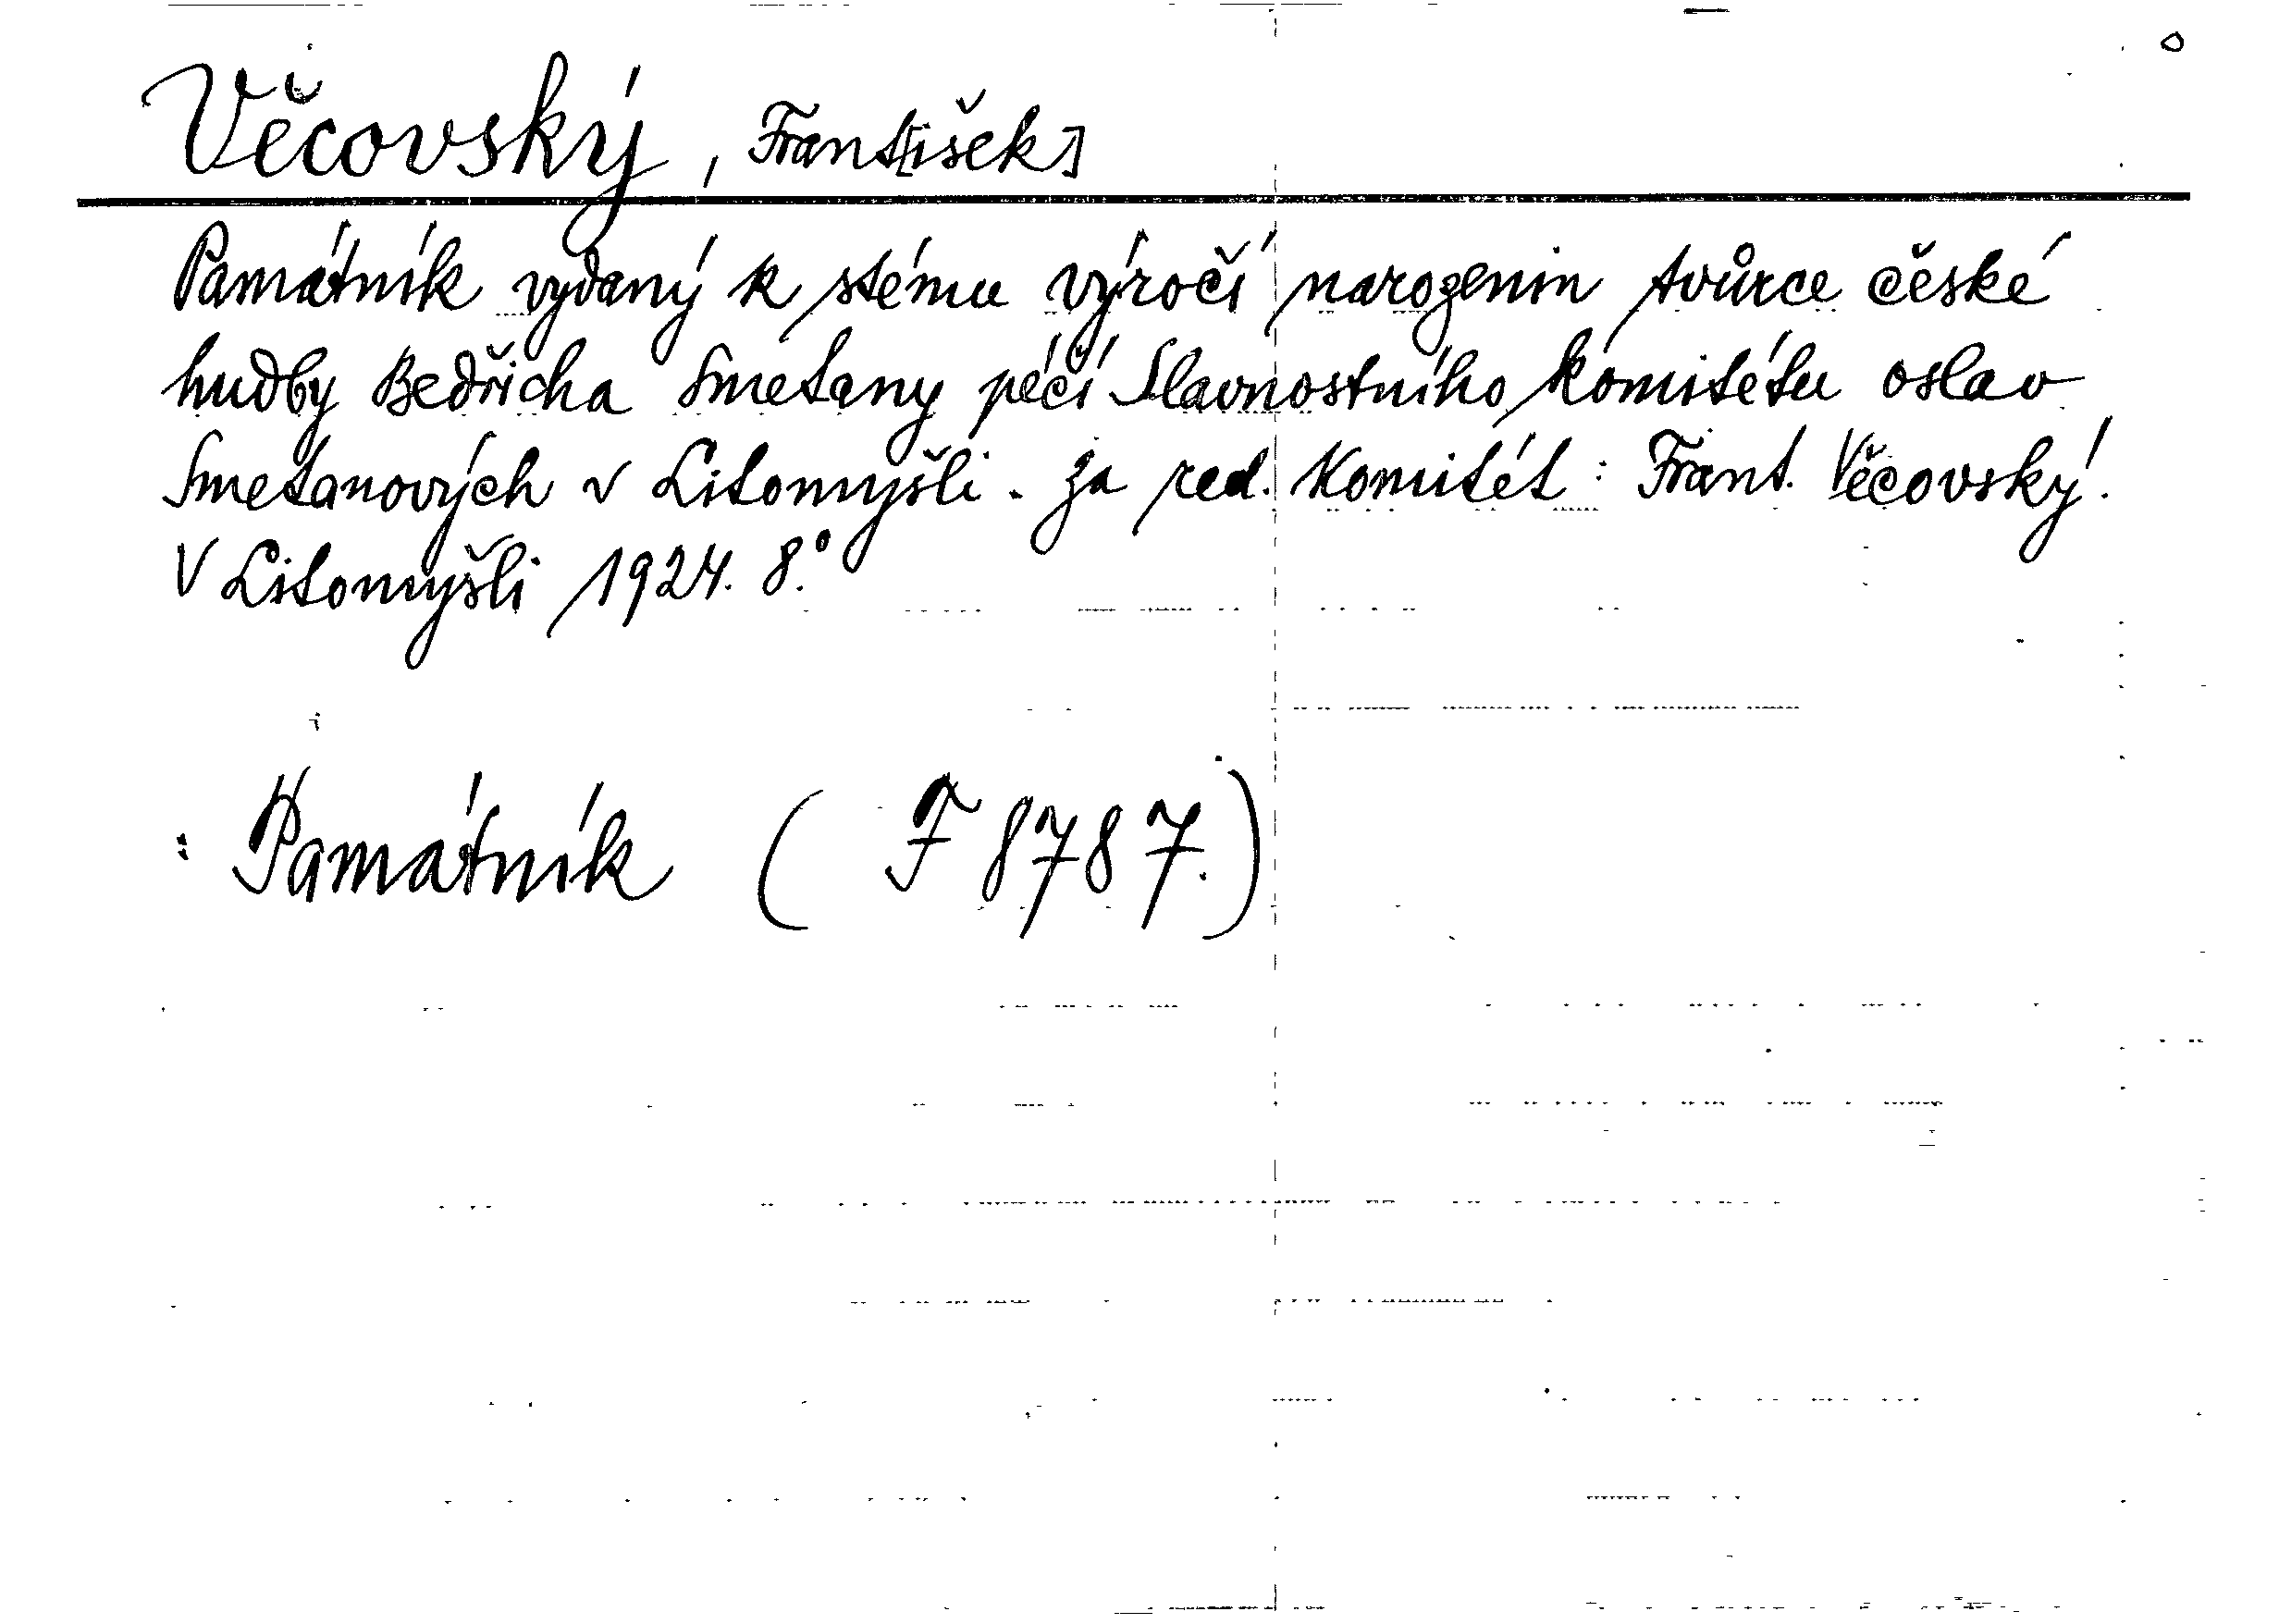 Věcovský, Frant[išek]
Památník vydaný k stému výročí narozenin tvůrce české
hudby Bedřicha Smetany péčí Slavnostního komitétu oslav
Smetanových v Litomyšli. Za red. Komitét: Frant. Věcovský.
V Litomyšli 1924. 8.°
: Památník ( F 8787.)